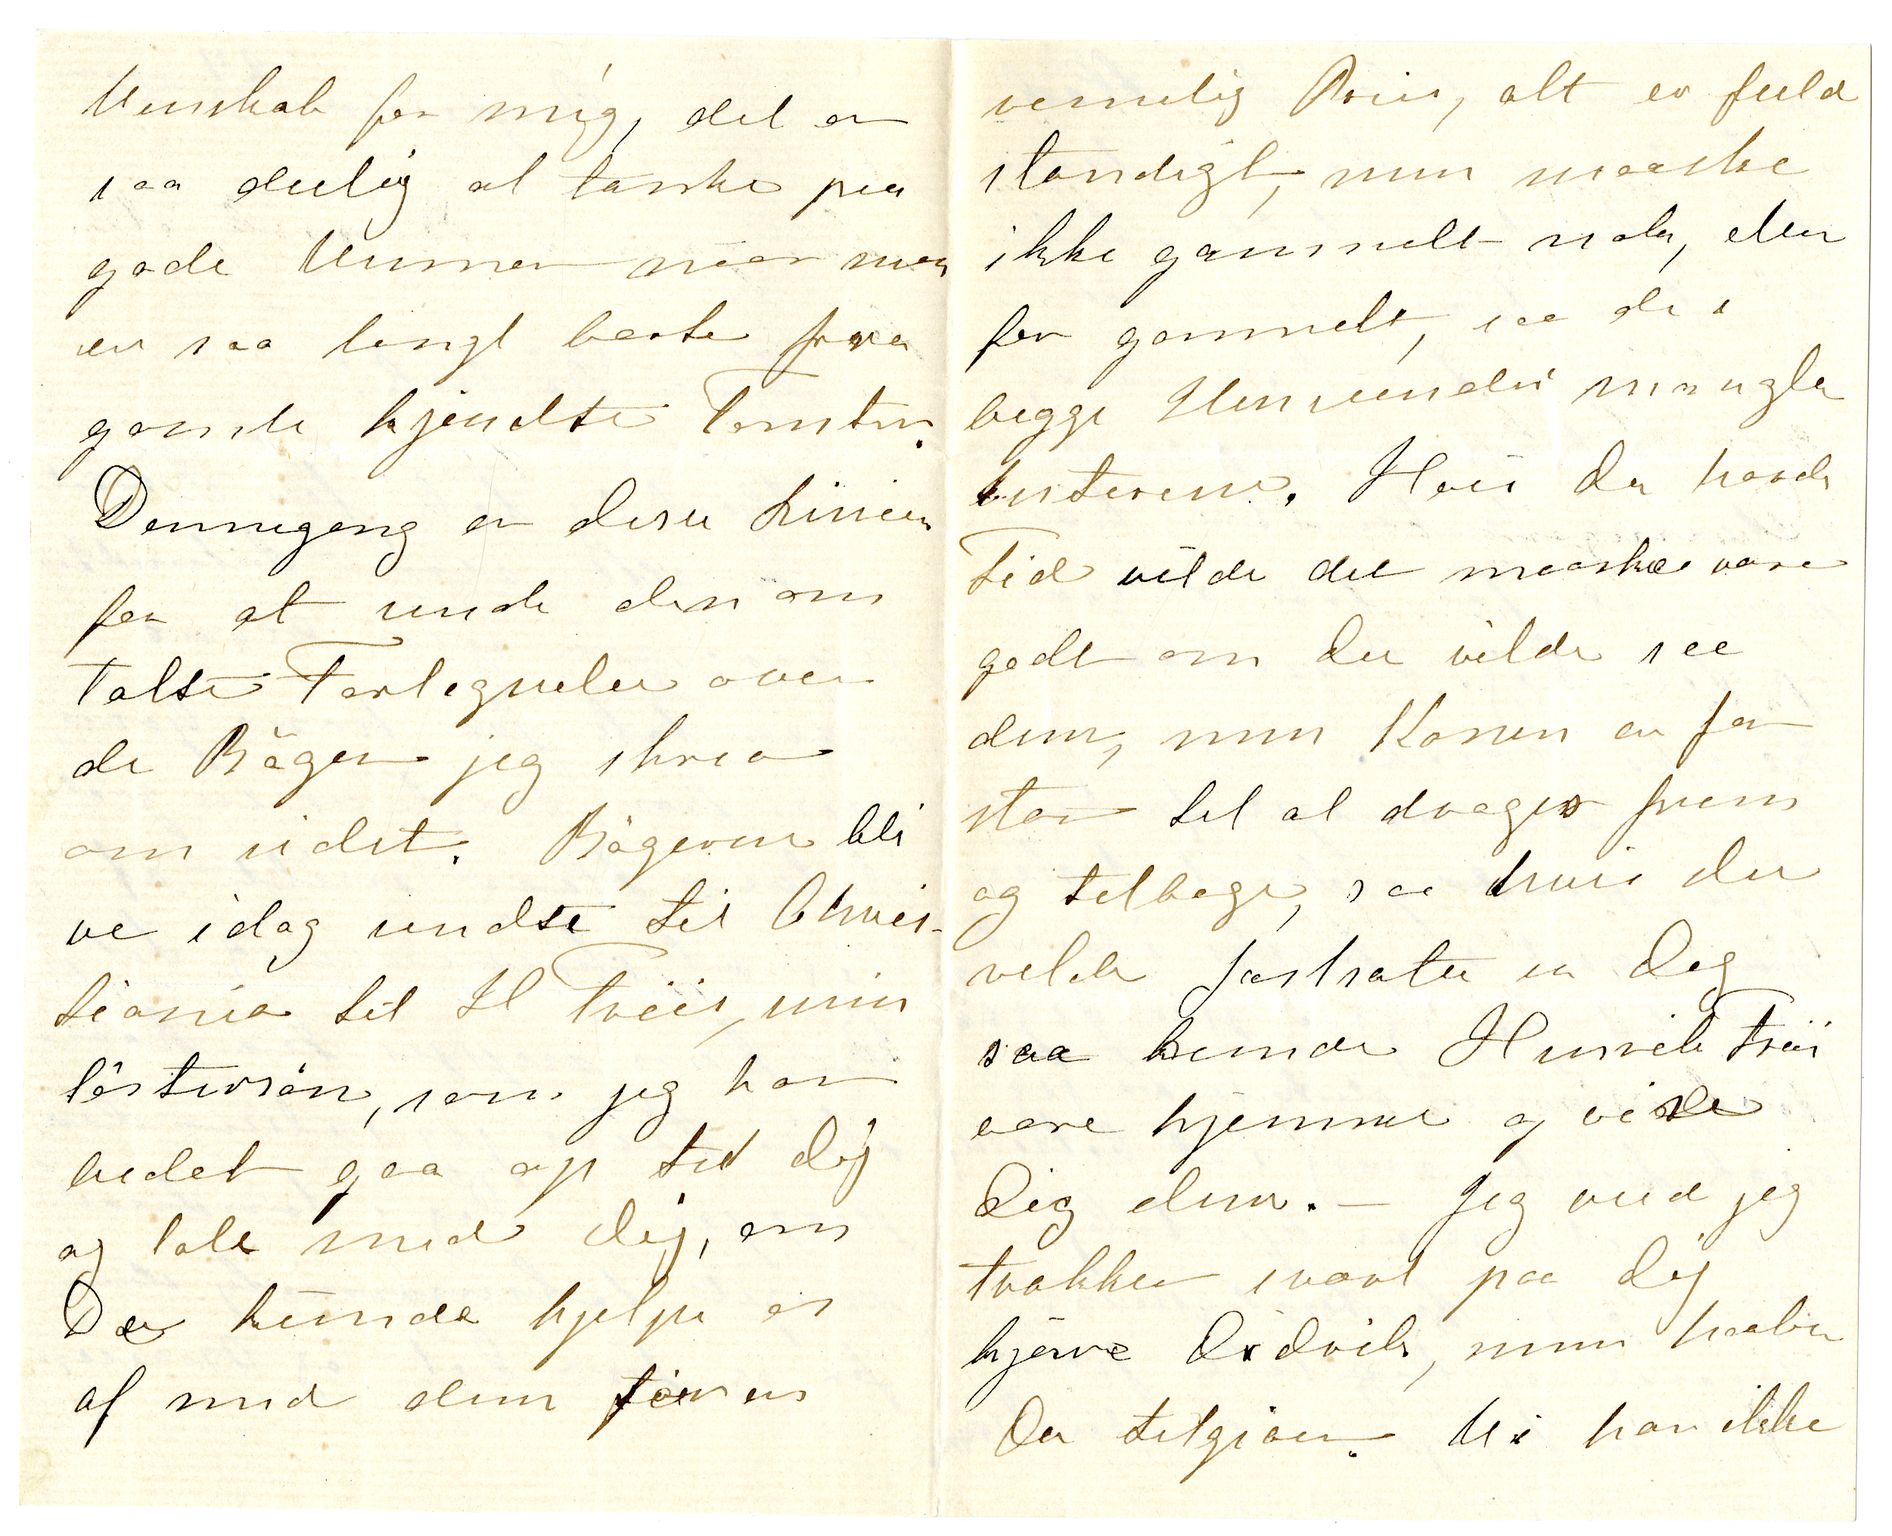 Venskab for mig, det er
saa deilig at tænke paa
gode Venner naar man
er saa langt borte fra
gamle kjendte Tomter.
Dennegang er disse Linier
for at sende den om
talte Fortegnelse over
de Bøger jeg skrev
om sidst. Bøgerne ble
ve idag sendte til Chris-
tiania til H Friis, min
Søstersøn, som jeg har
bedet gaa op til Dig
og tale med Dig, om
Du kunde hjelpe os
af med dem for en
rimelig Priis, alt er fuld
stændigt, men maaske
ikke gammelt nok, eller
for gammelt, saa de i
begge Henseender mangler
Interesse. Hvis Du havde
Tid vilde det maaske være
godt om Du vilde see
dem, men Kassen er for
stor til at drages frem
og tilbage, saa hvis Du
vilde fastsætte en Dag
saa kunde Henrik Friis
være hjemme og vise
Dig dem. — Jeg veed jeg
trækker svært paa Dig
kjære Didrik, men haaber
Du tilgiver. Vi har ikke